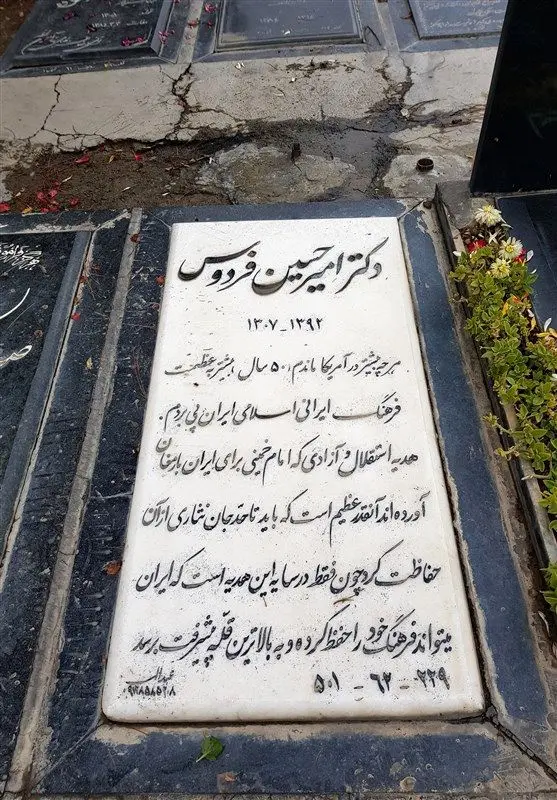 دکتر امیر حسین فردوس
۱۳۰۷-۱۳۹۲
هر چه بیشتر در آمریکا ماندم، ۵۰ سال، بیشتر به عظمت
فرهنگ ایرانی اسلامی ایران پی بردم.
هدیه استقلال و آزادی که امام خمینی برای ایران بارمغان
آورده اند آنقدر عظیم است که باید تا حد جان نثاری از آن
حفاظت کرد چون فقط در سایه این هدیه است که ایران
میتواند فرهنگ خود را حفظ کرده و به بالاترین قله پیشرفت برسد
۵۰۱ - ۶۲ - ۲۲۹